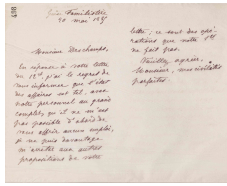 438
Guise Familistère
20 mai 1887
Monsieur Deschamps,
En réponse à votre lettre
du 12 ct, j'ai le regret de
vous informer que l'état
des affaires est tel, avec
notre personnel au grand
complet, qu'il ne m'est
pas possible d'abord de
vous offrir aucun emploi,
ni que puis davantage
m'arrêter aux autres
propositions de votre
lettre ; ce sont des opé-
rations que notre Sté
ne fait pas.
Veuillez agréer,
Monsieur, mes civilités
parfaites.